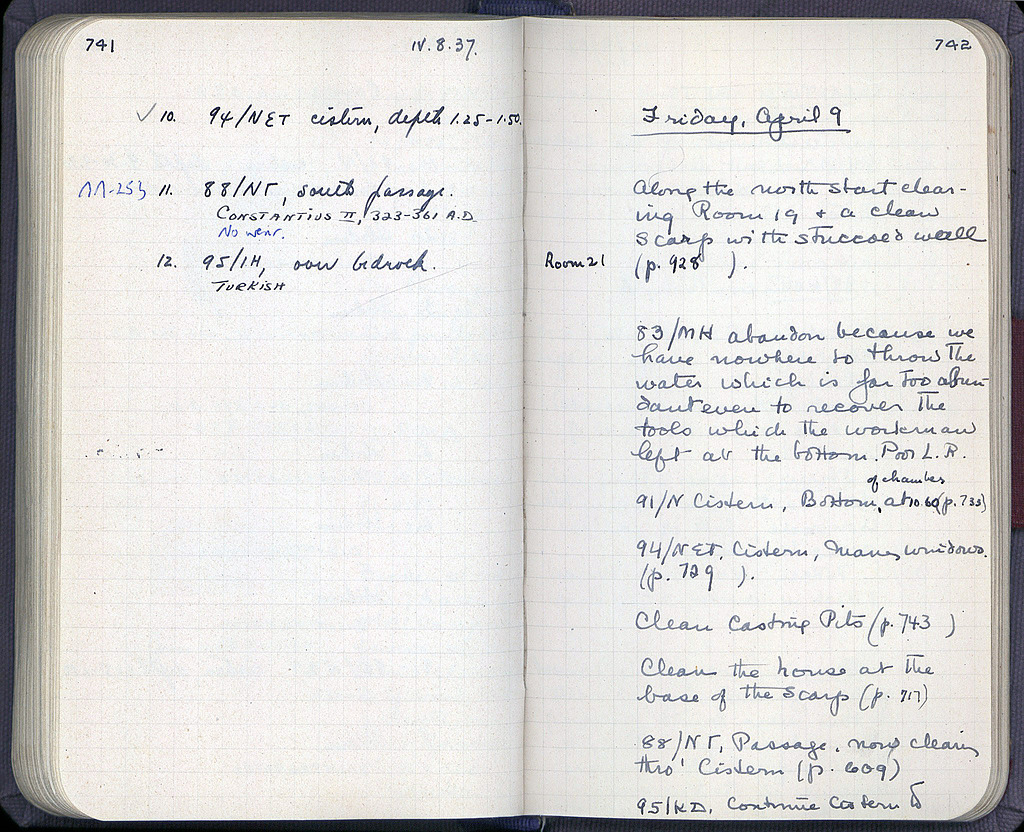 741
IV.8.37.
✓ 10. 94/NET cistern, depth 1.25-1.50.
ΛΛ-253 11. 88/NΓ, south passage.
CONSTANTIUS II, 323-361 A.D
No wear.
12. 95/IH, over bedrock.
TURKISH
742
Friday, April 9
Along the north start clear-
ing Room 19 + a clean
scarp with stuccoed wall
Room 21 (p. 928 ).
83/MH abandon because we
have nowhere to throw the
water which is far too abun-
dant even to recover the
tools which the workman
left at the bottom. Poor L.R.
of chamber
91/N Cistern, Bottom, at 10.60 (p. 733)
94/NET. Cistern, Manes windows.
(p. 729 ).
Clean Casting Pits (p. 743 )
Clean the house at the
base of the scarp (p. 717)
88/NΓ, Passage, now clearing
thro' Cistern (p. 609)
95/KD. Continue Cistern